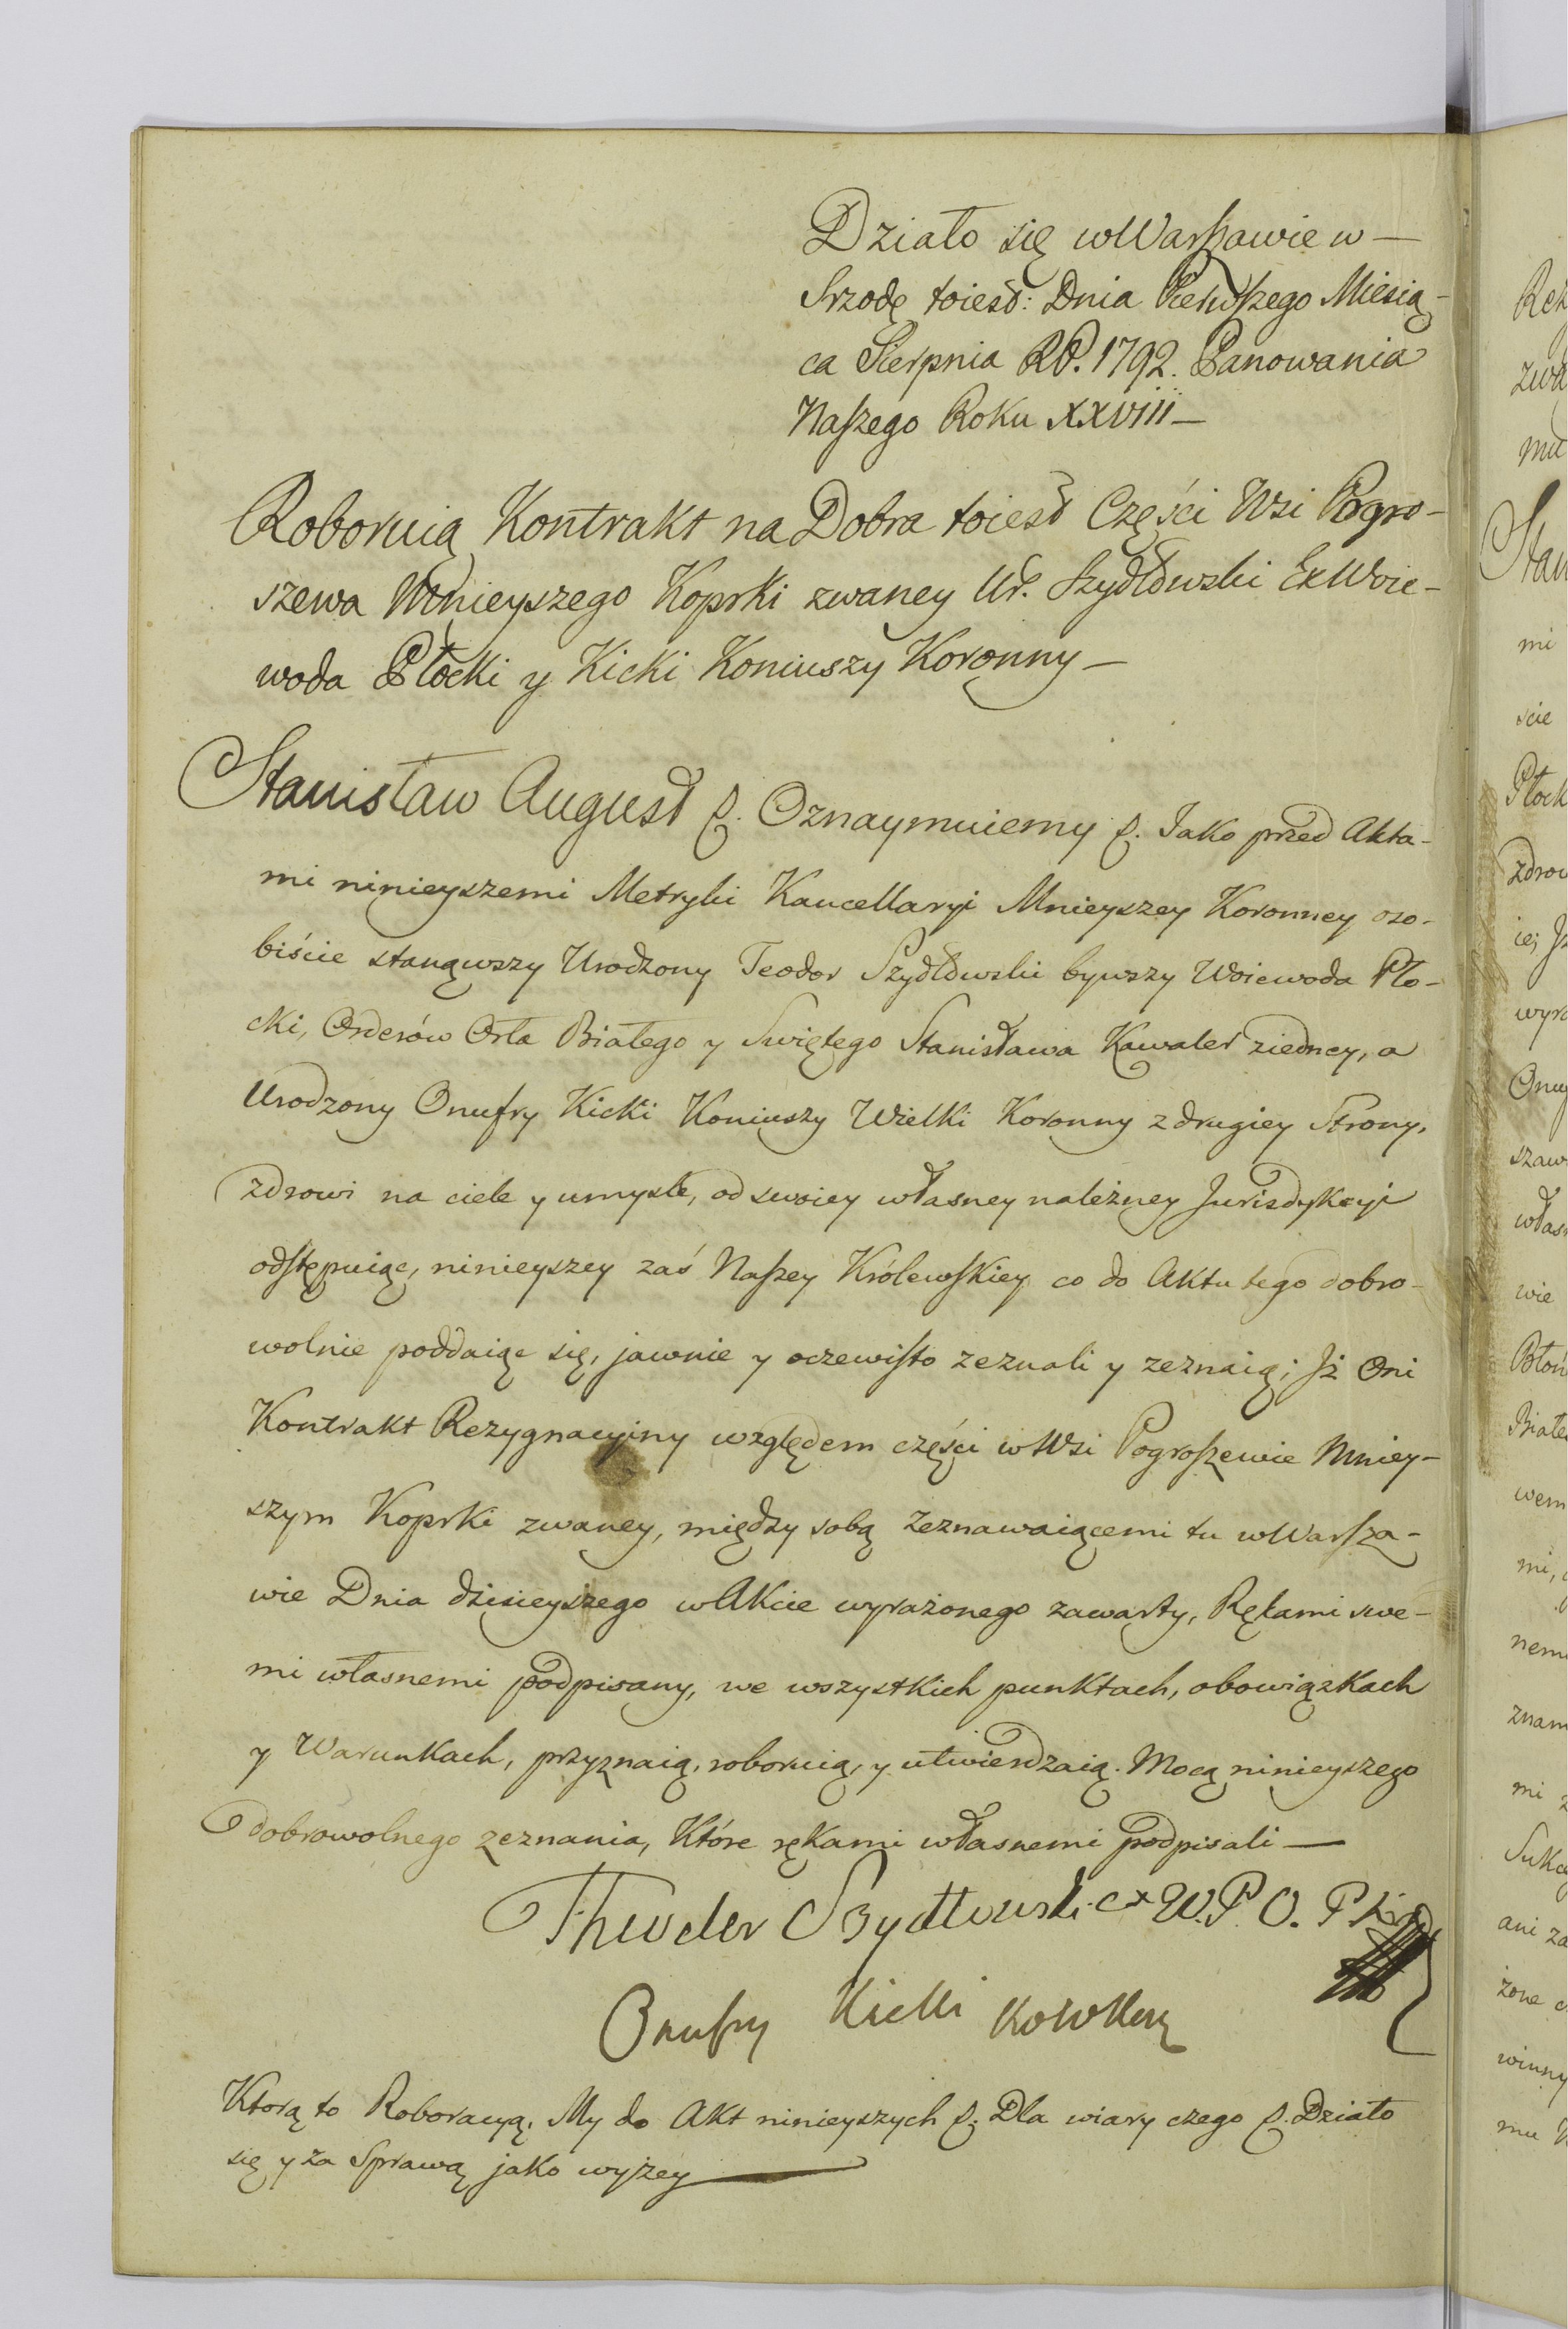 Działo się w Warszawie w —
Srzodę toiest: Dnia Pierwszego Miesią-
ca Sierpnia RP. 1792. Panowania
Naszego Roku XXVIII —
Roboruią Kontrakt na Dobra toiest Części Wsi Pogro-
szewa Mnieyszego Koprki zwaney Ur. Szydłowski Ex Woie-
woda Płocki y Kicki Koniuszy Koronny —
Stanisław August &. Oznaymuiemy &. Jako przed Akta-
mi ninieyszemi Metryki Kancellaryi Mnieyszey Koronney oso-
biście stanąwszy Urodzony Teodor Szydłowski bywszy Woiewoda Pło-
cki, Orderów Orła Białego y Swiętego Stanisława Kawaler ziedney, a
Urodzony Onufry Kicki Koniuszy Wielki Koronny z drugiey Strony,
zdrowi na ciele y umyśle, od swoiey własney należney Jurisdykcyi
odstępuiąc, ninieyszey zaś Naszey Królewskiey co do Aktu tego dobro-
wolnie poddaiąc się, jawnie y oczewisto zeznali y zeznaią; Jż Oni
Kontrakt Rezygnacyiny względem części w Wsi Pogroszewie Mniey-
szym Koprki zwaney, między sobą Zeznawaiącemi tu w Warsza-
wie Dnia dzisieyszego w Akcie wyrażonego zawarty, Rękami swe-
mi własnemi podpisany, we wszystkich punktach, obowiązkach
y Warunkach, przyznaią, roboruią, y utwierdzaią. Mocą ninieyszego
dobrowolnego zeznania, Które rękami własnemi podpisali —
Theodor Szydłowski ex W. P. O.
Onufry Kicki
Ktorą to Roboracyą, My do Akt ninieyszych &. Dla wiary czego &. Działo
się y za Sprawą jako wyżey —